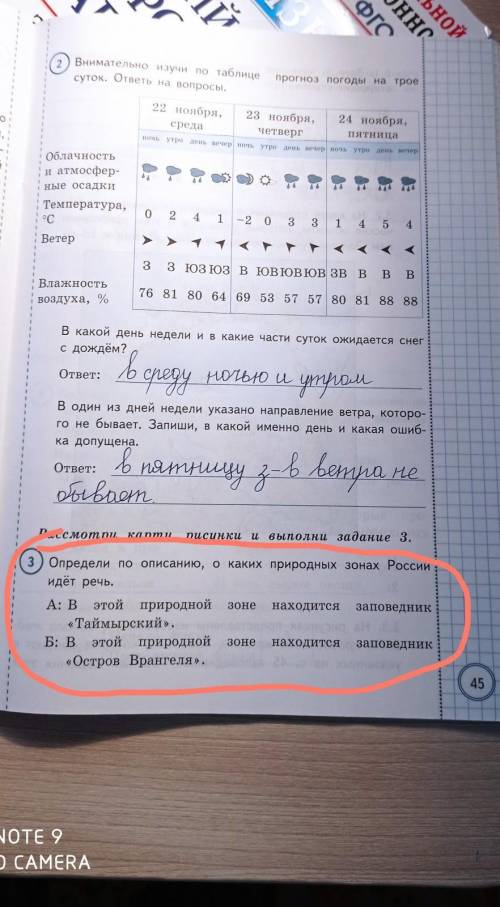 ЬНОЙ
ОНН
ФГС
2 Внимательно изучи по таблице прогноз погоды на трое
суток. Ответь на вопросы.
22 ноября, среда
23 ноября, четверг
24 ноября, пятница
ночь утро день вечер ночь утро день вечер ночь утро день вечер
Облачность
и атмосфер-
ные осадки
Температура, °C 0 2 4 1 −2 0 3 3 1 4 5 4
Ветер
З З ЮЗ ЮЗ В ЮВ ЮВ ЮВ ЗВ В В В
Влажность
воздуха, % 76 81 80 64 69 53 57 57 80 81 88 88
В какой день недели и в какие части суток ожидается снег
с дождём?
Ответ: в среду ночью и утром
В один из дней недели указано направление ветра, которо-
го не бывает. Запиши, в какой именно день и какая ошиб-
ка допущена.
Ответ: в пятницу з-в ветра не
бывает.
Рассмотри карту, рисунки и выполни задание 3.
3 Определи по описанию, о каких природных зонах России
идёт речь.
А: В этой природной зоне находится заповедник
«Таймырский».
Б: В этой природной зоне находится заповедник
«Остров Врангеля».
45
NOTE 9
CAMERA